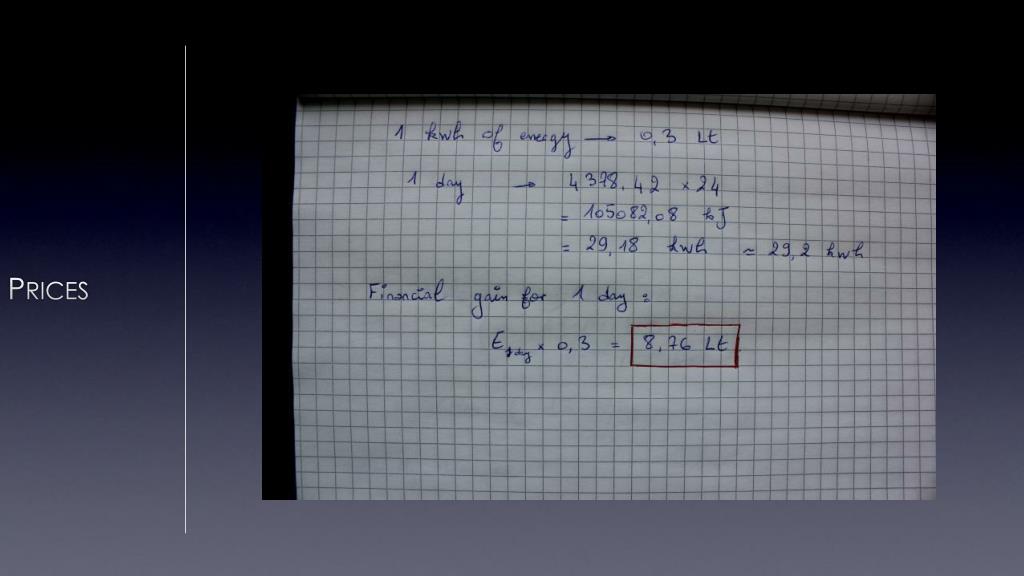 PRICES
1 kwh of energy → 0,3 Lt
1 day → 4378.42 × 24
= 105082,08 kJ
= 29,18 kwh ≈ 29,2 kwh
Financial gain for 1 day =
E1day × 0,3 = 8,76 Lt